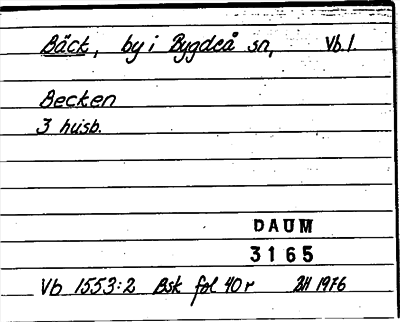 Bäck, by i Bygdeå sn, Vb l.
Becken
3 husb.
DAUM
3165
Vb 1553:2 Bsk fol 40 r BH 1976